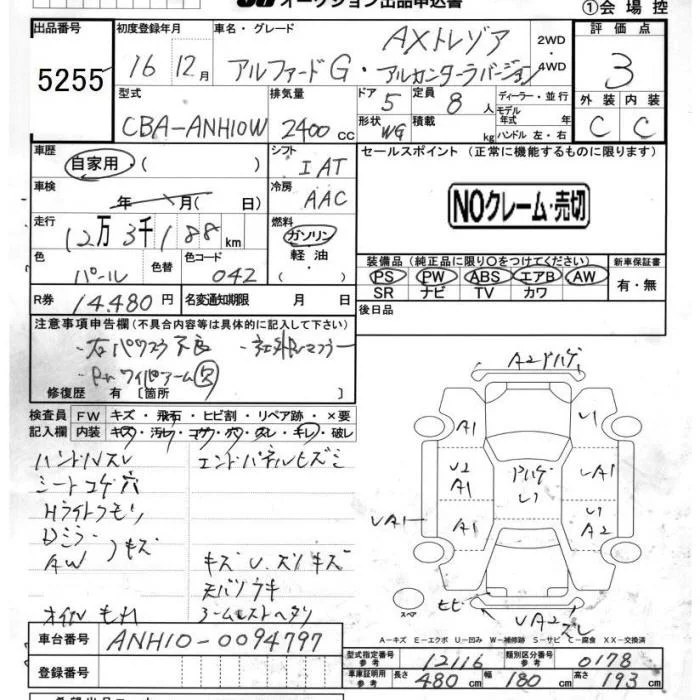 オークション出品申込書
①会場控
出品番号
5255
初度登録年月
16 12月
車名・グレード
AXトレゾア
アルファードG・アルカンターラバージョン
2WD
4WD
評価点
3
外装 内装
C C
型式
CBA-ANH10W
排気量
2400cc
ドア 5
形状 WG
定員 8人
積載 kg
ディーラー・並行
モデル年式 年
ハンドル 左・右
車歴
自家用 ( )
シフト
IAT
セールスポイント (正常に機能するものに限ります)
NOクレーム・売切
車検
年 月( 日)
冷房
AAC
走行
12万3千188km
燃料
ガソリン
軽油
( ・ )
色
パール
色替
色コード
042
装備品 (純正品に限り〇をつけてください)
PS PW ABS エアB AW
SR ナビ TV カワ
新車保証書
有・無
R券 14.480円
名変通知期限 月 日
後日品
注意事項申告欄 (不具合内容等は具体的に記入して下さい)
・右パワスラ不良 ・社外マフラー
・Rrワイパーアーム欠
修復歴 有 [箇所 ]
検査員記入欄
FW キズ・飛石・ヒビ割・リペア跡・×要
内装 キズ・汚レ・コゲ・穴・スレ・キレ・破レ
ハンドルスレ エンドパネルヒズミ
シートコゲ穴
Hライトクモリ
Dミラー
AW キズ
キズ U.スリキズ
天バリウキ
オイルもれ アームレストヘタリ
A2ドハゲ
A1
U1
U2
A1
ドハゲ
U1
UA1
UA1
A1
U1
A2
スペア
ヒビ
UA2スレ
A-キズ E-エクボ U-凹み W-補修跡 S-サビ C-腐食 XX-交換済
車台番号 ANH10-0094797
登録番号
型式指定番号 参考 12116 類別区分番号 参考 0178
車庫証明用 参考 長さ 480cm 幅 180cm 高さ 193cm